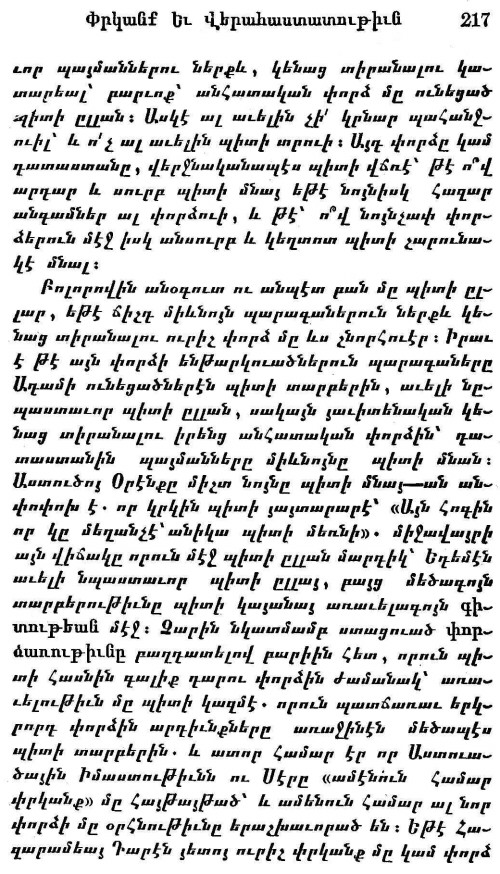 Փրկանք եւ Վերահաստատութիւն 217
ւոր պայմաններու ներքև, կենաց տիրանալու կա-
տարեալ՝ բարւոք՝ անհատական փորձ մը ունեցած
պիտի ըլլան։ Ասկէ ալ աւելին չի՛ կրնար պահանջ-
ուիլ՝ և ո՛չ ալ աւելին պիտի տրուի։ Այդ փորձը կամ
դատաստանը, վերջնականապէս պիտի վճռէ՝ թէ ո՞վ
արդար և սուրբ պիտի մնայ եթէ նոյնիսկ հազար
անգամներ ալ փորձուի, և թէ՝ ո՞վ նոյնչափ փոր-
ձերուն մէջ իսկ անսուրբ և կեղտոտ պիտի շարունա-
կէ մնալ։
Բոլորովին անօգուտ ու անպէտ բան մը պիտի ըլ-
լար, եթէ ճիշդ միևնոյն պարագաներուն ներքև կե-
նաց տիրանալու ուրիշ փորձ մը ևս շնորհուէր։ Իրաւ
է թէ այն փորձի ենթարկուածներուն պարագաները
Ադամի ունեցածներէն պիտի տարբերին, աւելի նը-
պաստաւոր պիտի ըլլան, սակայն յաւիտենական կե-
նաց տիրանալու իրենց անհատական փորձին՝ դա-
տաստանին պայմանները միևնոյնը պիտի մնան։
Աստուծոյ Օրէնքը միշտ նոյնը պիտի մնայ—ան ան-
փոփոխ է. որ կրկին պիտի յայտարարէ՝ «Այն հոգին
որ կը մեղանչէ՝ անիկա պիտի մեռնի»․ միջավայրի
այն վիճակը որուն մէջ պիտի ըլլան մարդիկ՝ Եդեմէն
աւելի նպաստաւոր պիտի ըլլայ, բայց մեծագոյն
տարբերութիւնը պիտի կայանայ առաւելագոյն գի-
տութեան մէջ։ Չարին նկատմամբ ստացուած փոր-
ձառութիւնը բաղդատելով բարիին հետ, որուն պի-
տի հասնին գալիք դարու փորձին ժամանակ՝ առա-
ւելութիւն մը պիտի կազմէ. որուն պատճառաւ երկ-
րորդ փորձին արդիւնքները առաջինէն մեծապէս
պիտի տարբերին. և ատոր համար էր որ Աստուա-
ծային Իմաստութիւնն ու Սէրը «ամէնուն համար
փրկանք» մը հայթայթած՝ և ամենուն համար ալ նոր
փորձի մը օրհնութիւնը երաշխաւորած են։ Եթէ Հա-
զարամեայ Դարէն յետոյ ուրիշ փրկանք մը կամ փորձ